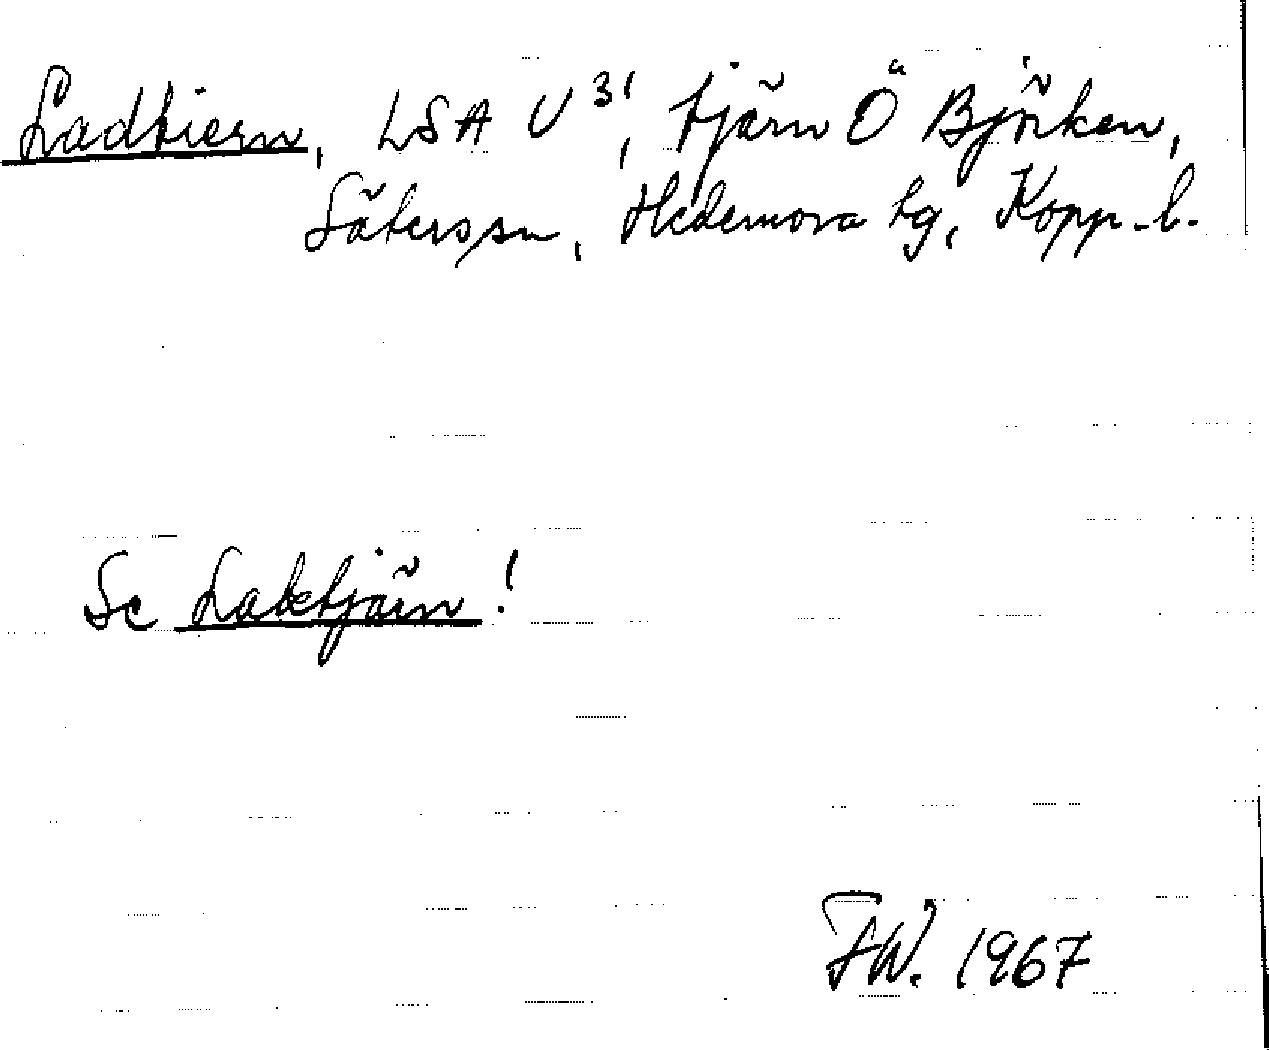 Ladtiern, LSA U 31, tjärn Ö Björken,
Säters sn, Hedemora tg, Kopp. l.
Se Laktjärn!
FW. 1967